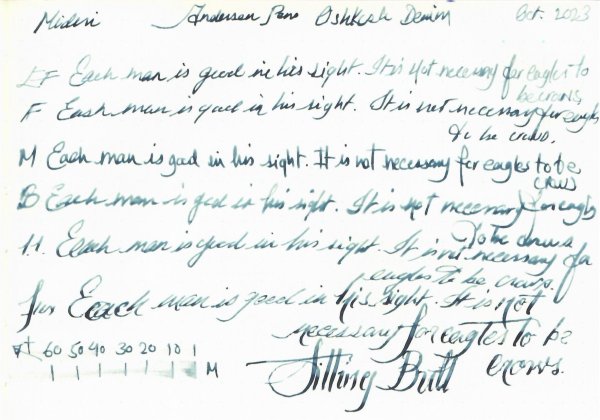 Midori Anderson Pens Oshkosh Denim Oct. 2023
EF Each man is good in his sight. It is not necessary for eagles to
be crows.
F Each man is good in his sight. It is not necessary for eagles
to be crows.
M Each man is good in his sight. It is not necessary for eagles to be
crows
B Each man is good in his sight. It is not necessary for eagles
to be crows
1.1. Each man is good in his sight. It is not necessary for
eagles to be crows.
fur Each man is good in his sight. It is not
necessary for eagles to be
crows.
Sitting Bull
60 50 40 30 20 10 1
M